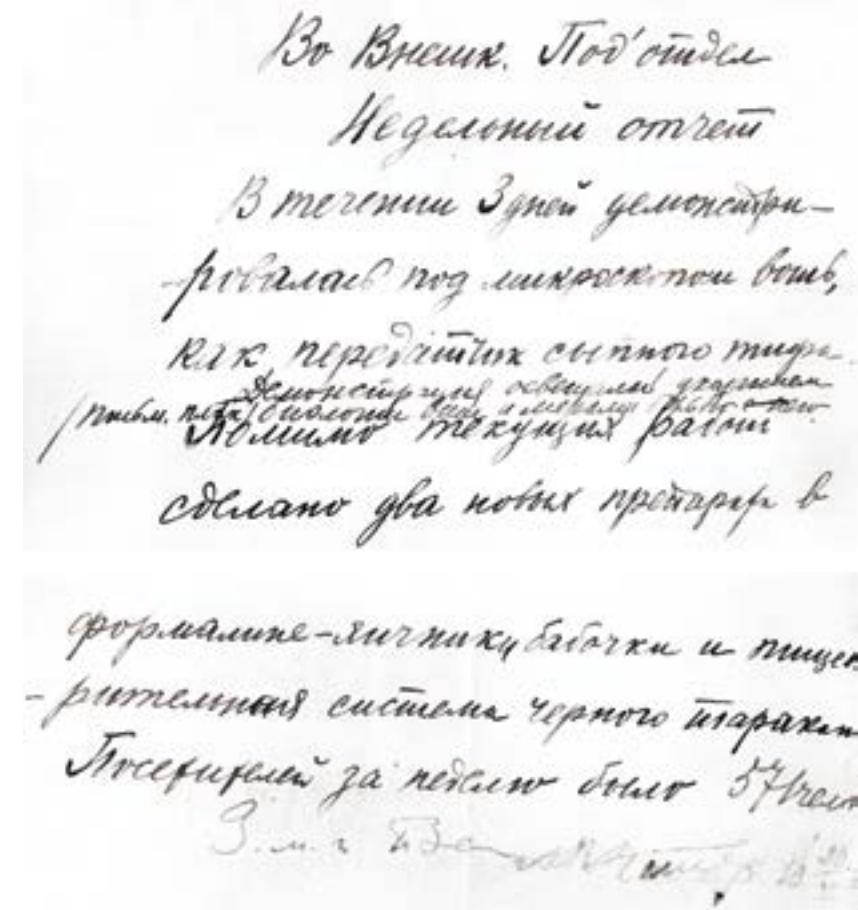 Во Внешк. Под'отдел
Недельный отчет
В течении 3 дней демонстри-
-ровалась под микроскопом вошь,
как передатчик сыпного тифа.
Демонстрация
биологии вши и
Помимо текущих работ
сделано два новых препарата в
формалине - яичники бабочки и пищев
-рительная система черного таракан
Посетителей за неделю было 571 чело